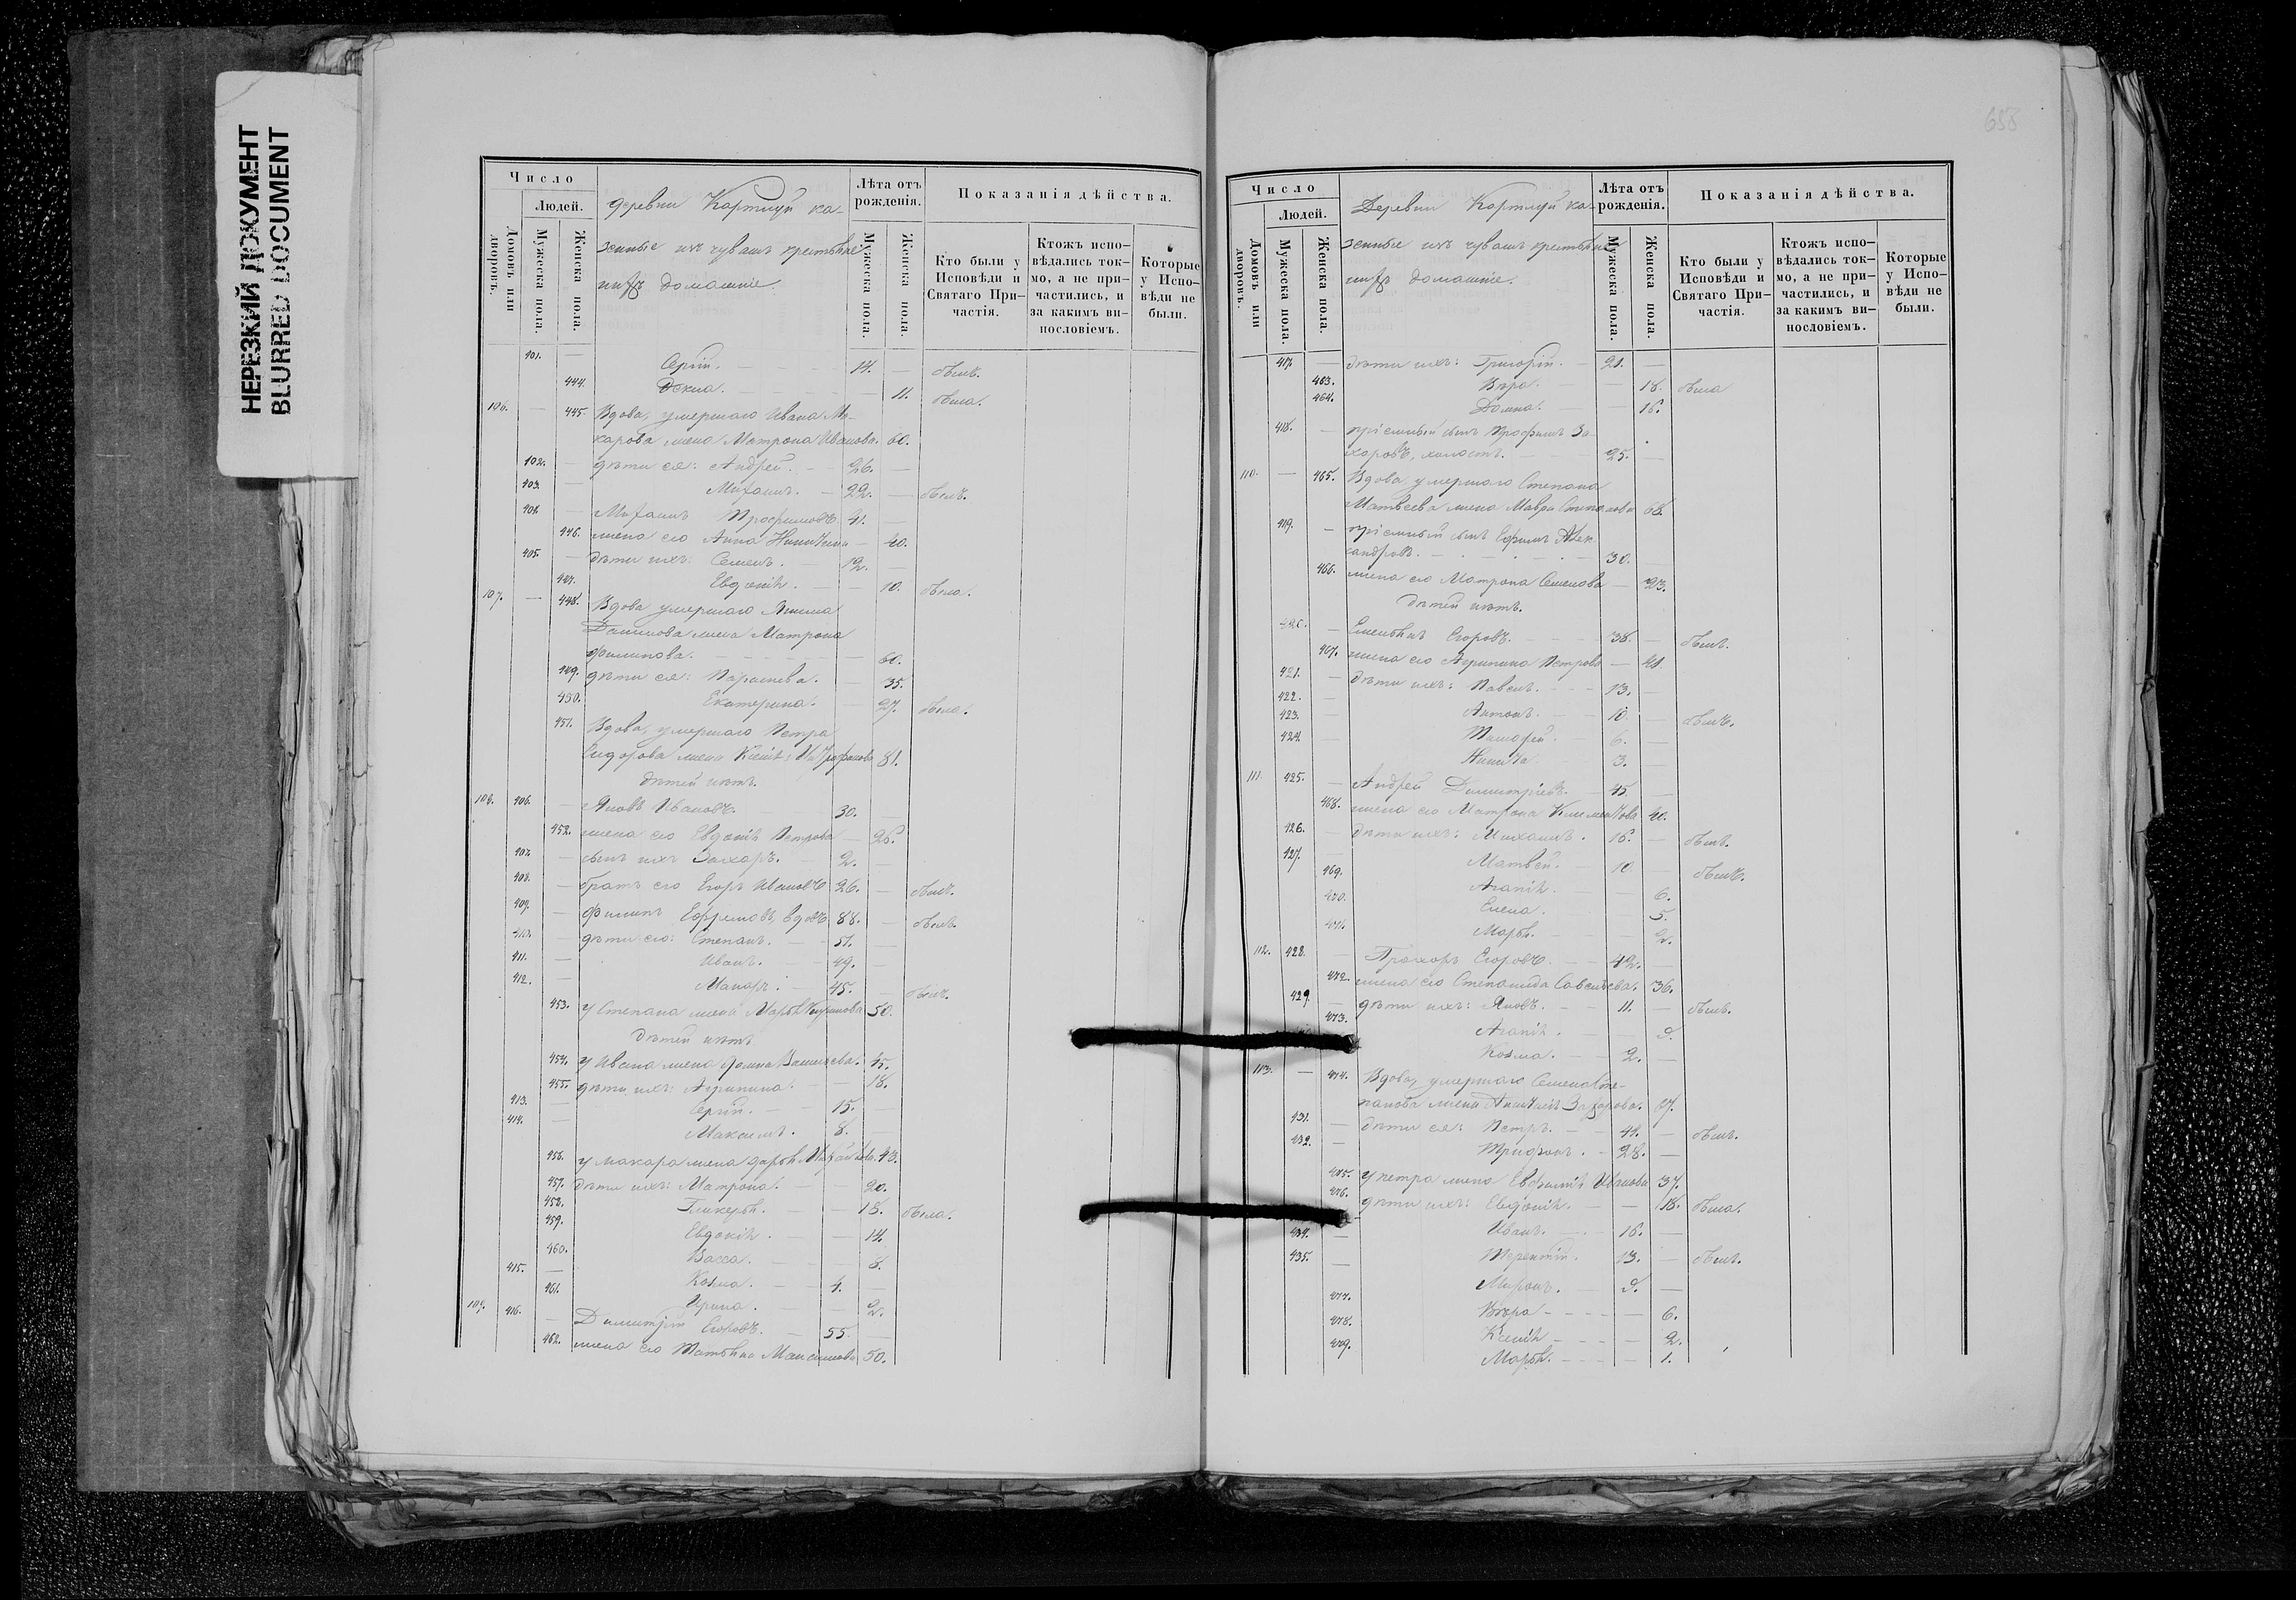 НЕРЕЗКИЙ ДОКУМЕНТ
BLURRED DOCUMENT
Число
Людей.
Домовъ или дворовъ.
Мужеска пола.
Женска пола.
деревни ка-
зенные изъ чувашъ крестьяне
домашніе.
Лѣта отъ рожденія.
Мужеска пола.
Женска пола.
Показанія дѣйства.
Кто были у Исповѣди и Святаго При-частія.
Ктожъ испо-вѣдались ток-мо, а не при-частились, и за какимъ ви-нословіемъ.
Которые у Испо-вѣди не были.
401. — Сергій. — 14. — былъ.
444. — 11. была.
106. — 445. Вдова, умершаго Ивана Ма-
карова жена Матрона Иванова. 60.
402. — дѣти ея: Андрей. — 26. —
403. — 22. — былъ.
404. — Трофимовъ. 41. —
446. жена его Анна — 40.
405. — дѣти ихъ: Семенъ. — 12. —
447. Евдокія. — 10. была.
107. — 448. Вдова умершаго
Данилова жена Матрона
Филипова. — 60.
449. дѣти ея: Параскева. — 35.
450. Екатерина. — 27. была.
451. Вдова, умершаго Петра
Сидорова жена Ксенія 81.
дѣтей нѣтъ.
108. 406. — Яковъ Ивановъ. 30.
452. жена его Евдокія Петрова — 26.
407. — сынъ ихъ Захаръ. — 2. —
408. — братъ его Егоръ Ивановъ 26. — былъ.
409. — Филипъ Ефремовъ, вдовъ 88. — былъ.
410. — дѣти его: Степанъ. — 51. —
411. — Иванъ. — 49. —
412. — Макаръ. — 45. — былъ.
453. у Степана жена Марья 50.
дѣтей нѣтъ
454. у Ивана жена Домна Васильева. 45.
455. дѣти ихъ: Агрипина. — 18.
413. — Сергій. — 15. —
414. — Максимъ. 8. —
456. у Макара жена Дарья 43.
457. дѣти ихъ: Матрона. — 20.
458. Гликерья. — 18. была.
459. Евдокія. — 14.
460. Васса. — 8.
415. — Козма. — 4. —
461. Ирина. — 2.
109. 416. — Димитрій Егоровъ. 55. —
462. жена его Татьяна Максимова 50.
658
Число
Людей.
Домовъ или дворовъ.
Мужеска пола.
Женска пола.
Деревни ка-
зенные изъ чувашъ крестьяне
домашніе.
Лѣта отъ рожденія.
Мужеска пола.
Женска пола.
Показанія дѣйства.
Кто были у Исповѣди и Святаго При-частія.
Ктожъ испо-вѣдались ток-мо, а не при-частились, и за какимъ ви-нословіемъ.
Которые у Испо-вѣди не были.
417. — дѣти ихъ: Григорій. — 21. —
463. Вѣра. — 18. была
464. Домна. — 16.
418. — пріемный сынъ Трофимъ За-
харовъ, холостъ. — 25. —
110. — 465. Вдова умершаго Степана
Матвѣева жена Мавра Степанова 68.
419. — пріемный сынъ Ефимъ Алек-
сандровъ. — 30.
466. жена его Матрона Семенова — 23.
дѣтей нѣтъ.
420. — Емельянъ Егоровъ. — 38. — былъ.
467. жена его Агрипина Петрова — 41.
421. — дѣти ихъ: Павелъ. — 13. —
422. — Антонъ. — 10. — былъ.
423. — Тимофей. — 6. —
424. — Никита 3. —
111. 425. — Андрей Димитріевъ. — 45. —
468. жена его Матрона 40.
426. — дѣти ихъ: Михаилъ. 16. — былъ.
427. — Матвей. — 10 — былъ.
469. Агапія. — 6.
470. Елена. — 5.
471. Марья. — 2.
112. 428. — Прохоръ Егоровъ. — 42. —
472. жена его Степанида Савельева. 36.
429. — дѣти ихъ: Яковъ. — 11. — былъ.
473. Агапія. — 9.
Козма. — 2. —
113. — 474. Вдова, умершаго Семена Сте-
панова жена Захарова. 67.
431. — дѣти ея: Петръ. — 41. — былъ.
432. — Трифонъ. — 28. —
475. у Петра жена Евфимія Иванова 37.
476. дѣти ихъ: Евдокія. — 18. была.
434. — Иванъ. — 16. —
435. — Терентій. — 13. — былъ.
Миронъ. — 9. —
477. Вѣра — 6.
478. Ксенія — 2.
479. Марья. — 1.